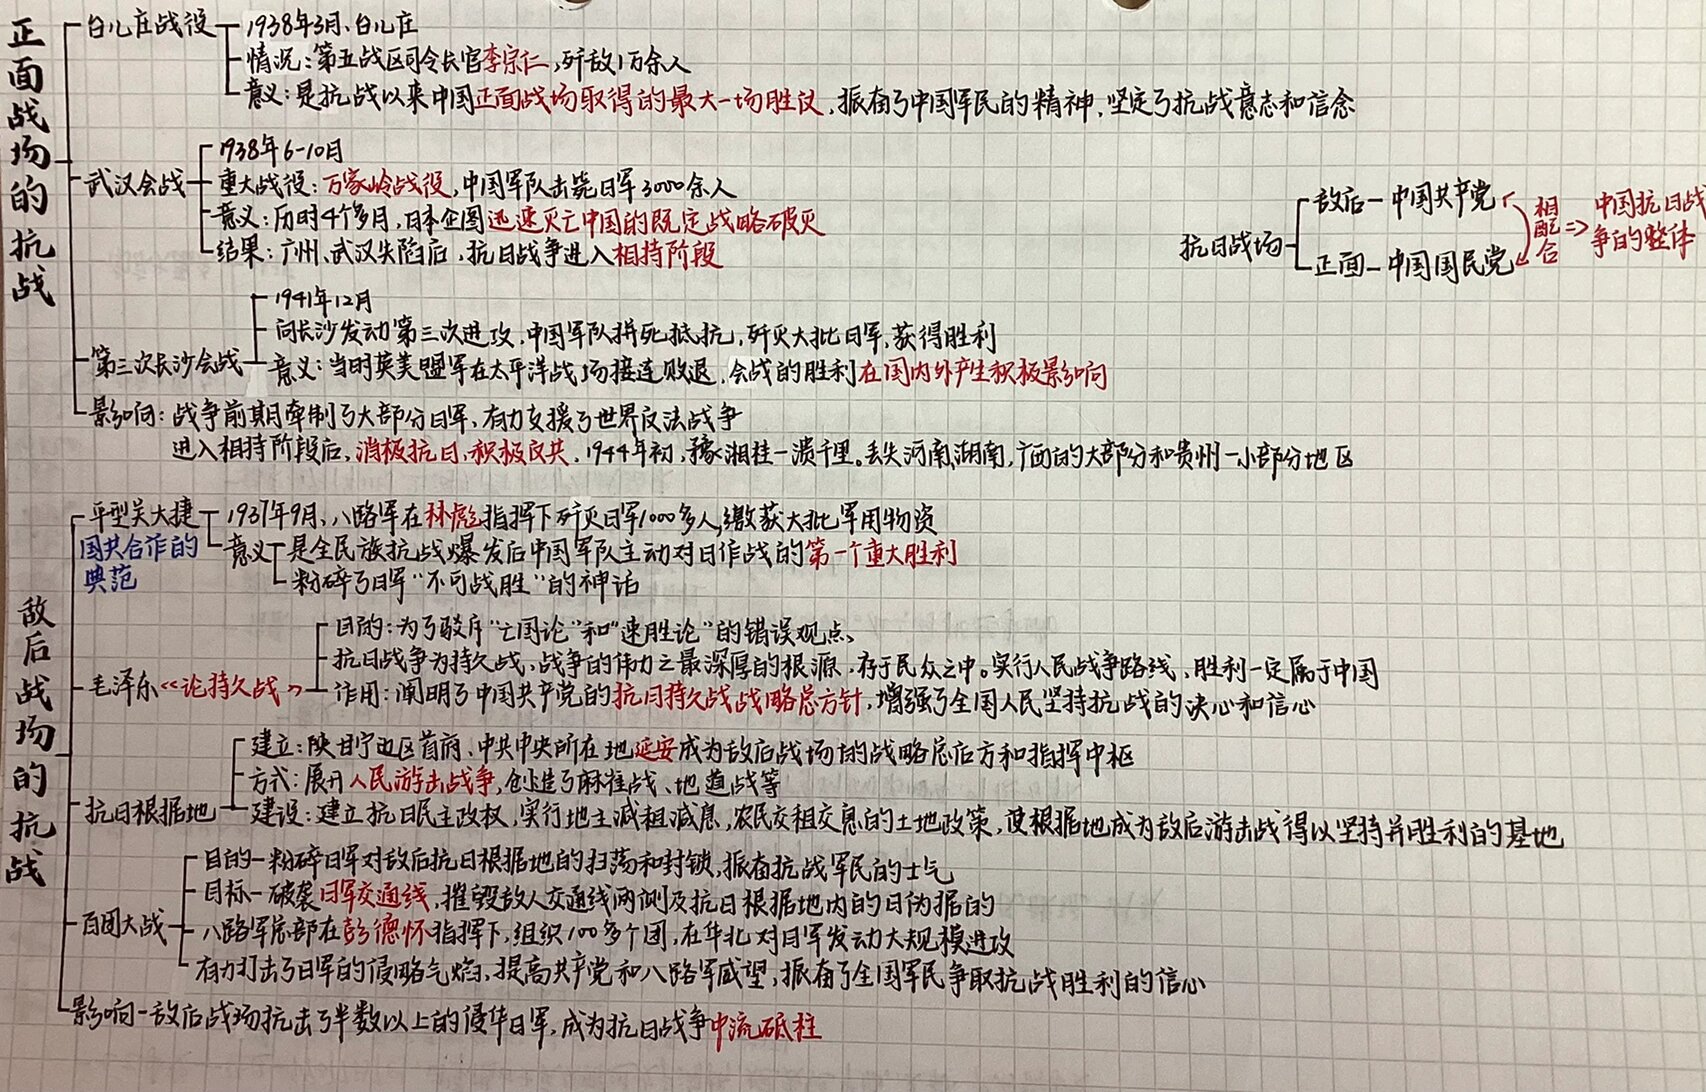 正面战场的抗战
台儿庄战役
1938年3月、台儿庄
情况：第五战区司令长官李宗仁,歼敌1万余人
意义：是抗战以来中国正面战场取得的最大一场胜仗,振奋了中国军民的精神,坚定了抗战意志和信念
武汉会战
1938年6-10月
重大战役：万家岭战役,中国军队击毙日军3000余人
意义：历时4个多月,日本企图迅速灭亡中国的既定战略破灭
结果：广州、武汉失陷后,抗日战争进入相持阶段
第三次长沙会战
1941年12月
向长沙发动第三次进攻,中国军队拼死抵抗,歼灭大批日军,获得胜利
意义：当时英美盟军在太平洋战场接连败退,会战的胜利在国内外产生积极影响
影响：战争前期牵制了大部分日军,有力支援了世界反法战争
进入相持阶段后,消极抗日,积极反共,1944年初,豫湘桂一溃千里。丢失河南,湖南,广西的大部分和贵州一小部分地区
抗日战场
敌后—中国共产党
正面—中国国民党
相配合
=>中国抗日战争的整体
敌后战场的抗战
平型关大捷
国共合作的
典范
1937年9月、八路军在林彪指挥下歼灭日军1000多人,缴获大批军用物资
意义
是全民族抗战爆发后中国军队主动对日作战的第一个重大胜利
粉碎了日军“不可战胜”的神话
毛泽东《论持久战》
目的：为了驳斥“亡国论”和“速胜论”的错误观点、
抗日战争为持久战、战争的伟力之最深厚的根源,存于民众之中。实行人民战争路线、胜利一定属于中国
作用：阐明了中国共产党的抗日持久战战略总方针,增强了全国人民坚持抗战的决心和信心
抗日根据地
建立：陕甘宁边区首府、中共中央所在地延安成为敌后战场的战略总后方和指挥中枢
方式：展开人民游击战争,创造了麻雀战、地道战等
建设：建立抗日民主政权,实行地主减租减息,农民交租交息的土地政策,使根据地成为敌后游击战得以坚持并胜利的基地
百团大战
目的—粉碎日军对敌后抗日根据地的扫荡和封锁,振奋抗战军民的士气
目标—破袭日军交通线,摧毁敌人交通线两侧及抗日根据地内的日伪据的
八路军总部在彭德怀指挥下,组织100多个团,在华北对日军发动大规模进攻
有力打击了日军的侵略气焰,提高共产党和八路军威望,振奋了全国军民争取抗战胜利的信心
影响—敌后战场抗击了半数以上的侵华日军,成为抗日战争中流砥柱